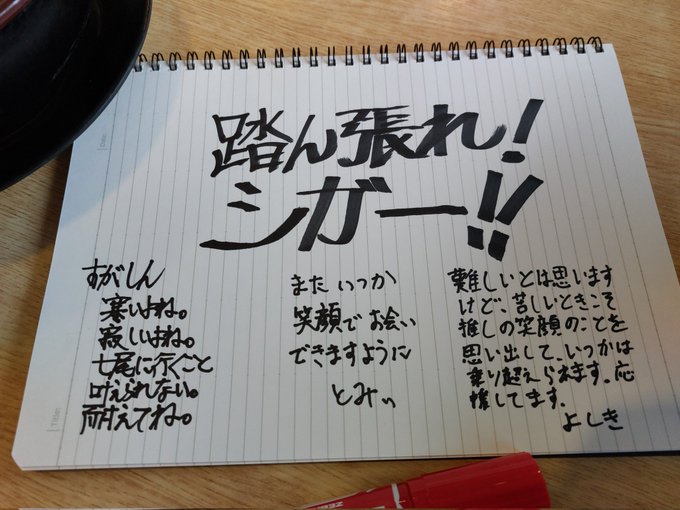 踏ん張れ!
シガー!!
すがしん
寒いよね。
寂しいよね。
七尾に行くこと
叶えられない。
耐えてね。
またいつか
笑顔でお会い
できますように
とみぃ
難しいとは思います
けど、苦しいときこそ
推しの笑顔のことを
思い出して、いつかは
乗り超えられます。応
援してます。
よしき